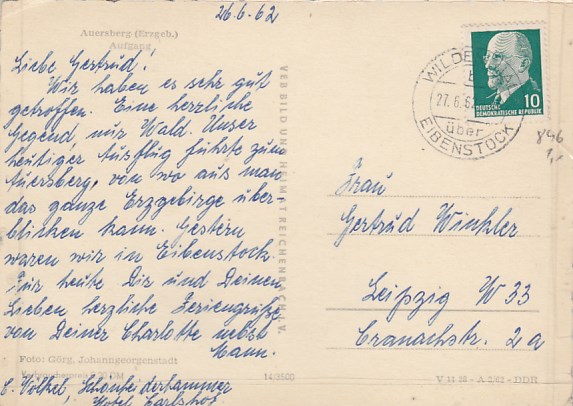 26.6.62
Auersberg (Erzgeb.)
Aufgang
Liebe Gertrud!
Wir haben es sehr gut
getroffen. Eine herrliche
Gegend, nur Wald. Unser
heutiger Ausflug führte zum
Auersberg, von wo aus man
das ganze Erzgebirge über-
blicken kann. Gestern
waren wir in Eibenstock.
Für heute Dir und Deinen
Lieben herzliche Feriengrüße
von Deiner Charlotte nebst
Mann.
Foto: Görg, Johanngeorgenstadt
E. Völkel, Schönheiderhammer
Hotel Carlshof
14/3500
VEB BILD UND HEIMAT REICHENBACH i. V.
27.6.62
über
EIBENSTOCK
10
DEUTSCHE
DEMOKRATISCHE REPUBLIK
846
Frau
Gertrud Winkler
Leipzig W 33
Cranachstr. 2a
DDR